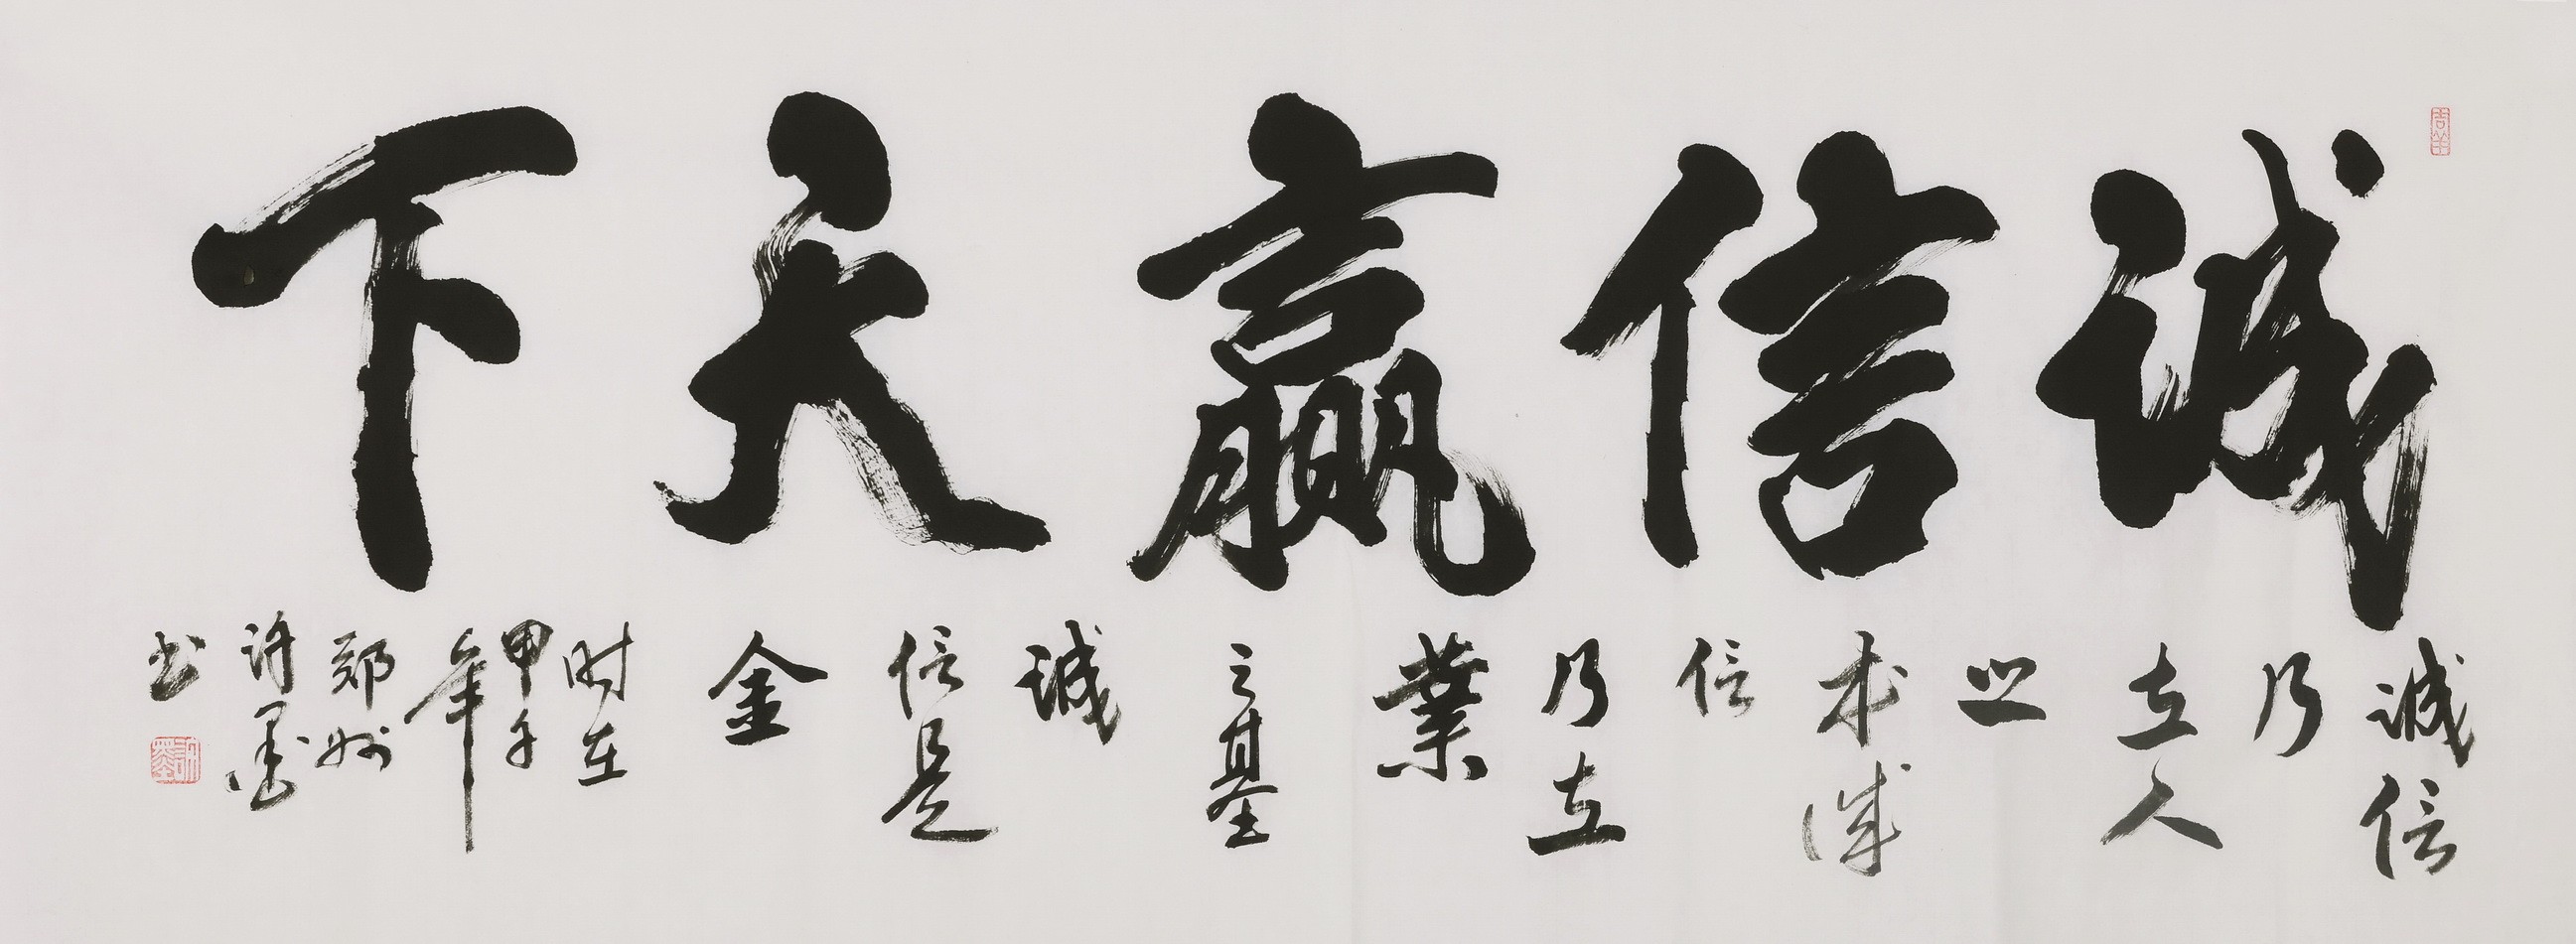 诚信赢天下
诚信
乃
立人
之
本诚
信
乃立
業
之基
诚
信是
金
时在
甲午
年
郑州
许墨
书